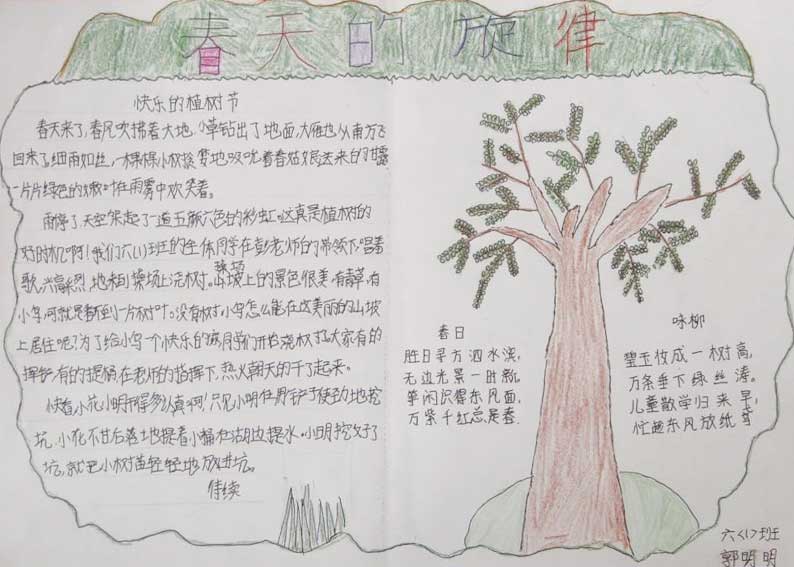 春天的旋律
快乐的植树节
春天来了,春风吹拂着大地,小草钻出了地面,大雁也从南方飞
回来了。细雨如丝,一棵棵小树贪婪地吸吮着春姑娘送来的甘露
一片片绿色的嫩叶在雨雾中欢笑着。
雨停了,天空架起了一道五颜六色的彩虹。这真是植树的
好时机啊!我们六(1)班的全体同学在彭老师的带领下,唱着
歌,兴高采烈地来到操场上浇树。山坡上的景色很美,有青草,有
小鸟,可就是看不到一片树叶。没有树,小鸟怎么能在这美丽的山坡
上居住呢?为了给小鸟一个快乐的家,同学们开始浇树了。大家有的
挥锹,有的提桶,在老师的指挥下,热火朝天的干了起来。
快看,小花小明干得多认真啊!只见小明在用铲子使劲地挖
坑,小花不甘落后地提着小桶在湖边提水。小明挖好了
坑,就把小树苗轻轻地放进坑。
待续
春日
胜日寻方泗水滨,
无边光景一时新。
等闲识得东风面,
万紫千红总是春.
咏柳
碧玉妆成一树高,
万条垂下绿丝涛。
儿童散学归来早,
忙趁东风放纸鸢
六(1)班
郭明明